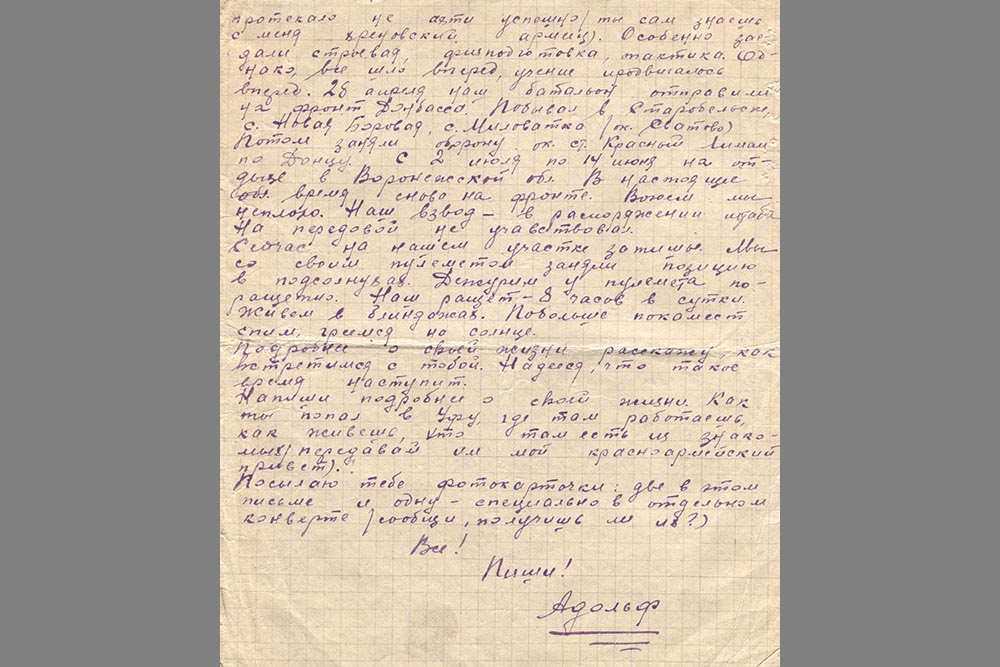 протекало не ахти успешно /ты сам знаешь
с меня хреновский армиец). Особенно зае-
дали строевая, физподготовка, тактика. Од-
нако, все шло вперед, учение продвигалось
вперед. 28 апреля наш батальон отправили
на фронт Донбасса. Побывал в Старобельске,
с. Новая Боровая, с. Миловатка /ок. Сватово)
Потом заняли оборону ок. ст. Красный Лиман
по Донцу. С 2 июля по 14 июня на от-
дыхе в Воронежской обл. В настоящее
время снова на фронте. Воюем мы
неплохо. Наш взвод – в распоряжении штаба
На передовой не учавствовал.
Сейчас на нашем участке затишье. Мы
со своим пулеметом заняли позицию
в подсолнухах. Дежурим у пулемета по-
ращетно. Наш ращет – 8 часов в сутки.
Живем в блиндажах. Побольше покамест
спим, греемся на солнце.
Подробнее о своей жизни расскажу, как
встретимся с тобой. Надеюся, что такое
время наступит.
Напиши подробнее о своей жизни. Как
ты попал в Уфу, где там работаешь,
как живешь, кто там есть из знако-
мых /передавай им мой красноармейский
привет).
Посылаю тебе фотокарточки: две в этом
письме и одну – специально в отдельном
конверте /сообщи, получишь ли их?)
Все!
Пиши!
Адольф